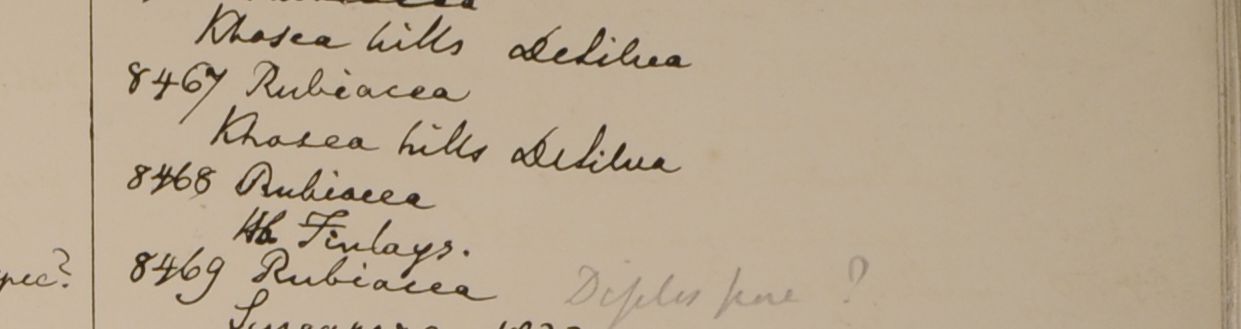 Khasea hills DeSilva
8467 Rubiacea
Khasea hills DeSilva
8468 Rubiacea
Hb Finlays.
pec? 8469 Rubiacea Diplospore ?